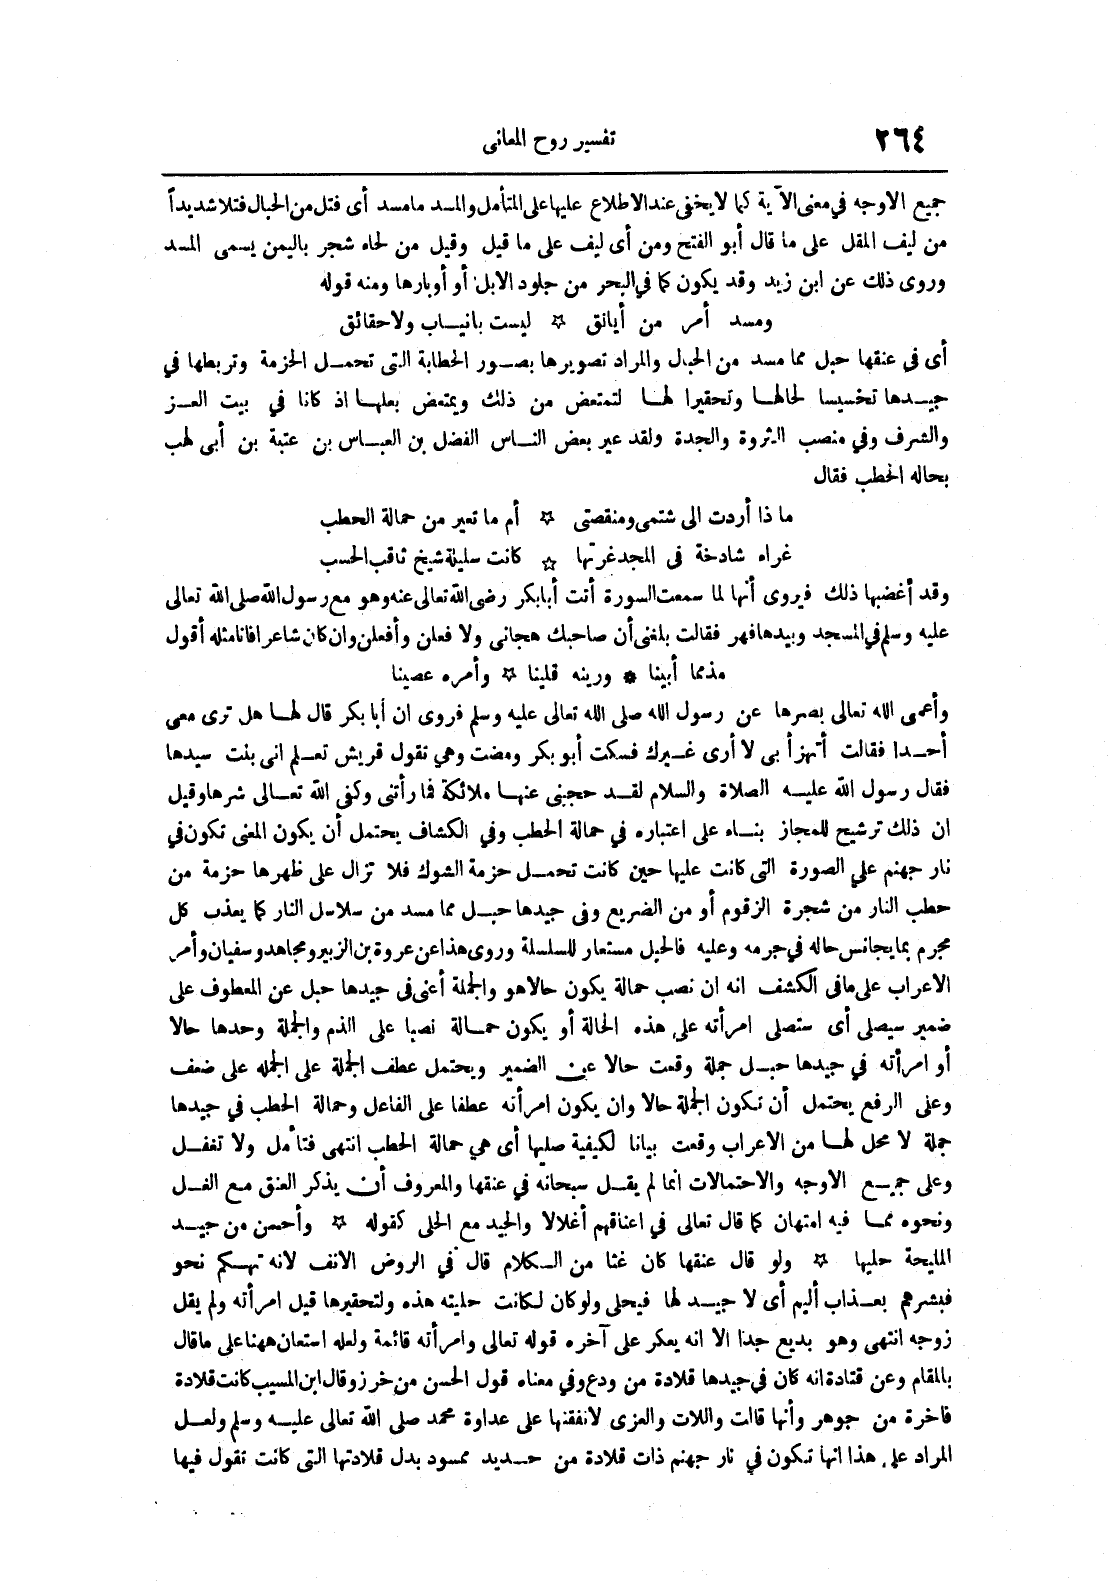 ٢٦٤
تفسير روح المعانى
جميع الاوجه في معنى الآية كما لا يخفى عند الاطلاع عليها على المتأمل والمسد مامسد أى فتل من الحبال فتلا شديداً
من ليف المقل على ما قال أبو الفتح ومن أى ليف على ما قيل وقيل من لحاء شجر باليمن يسمى المسد
وروى ذلك عن ابن زيد وقد يكون كما في البحر من جلود الابل أو أوبارها ومنه قوله
ومسد أمر من أيانق ☆ ليست بانيـاب ولاحقائق
أى فى عنقها حبل مما مسد من الحبال والمراد تصويرها بصـور الحطابة التى تحمـل الحزمة وتربطها في
جيـدها تخسيسا لحالهـا وتحقيرا لهـا لتمتعض من ذلك ويمتعض بعلهـا اذ كانا في بيت العـز
والشرف وفي منصب الثروة والجدة ولقد عير بعض النـاس الفضل بن العبـاس بن عتبة بن أبى لهب
بحاله الحطب فقال
ما ذا أردت الى شتمى ومنقصتى ☆ أم ما تعير من حمالة الحطب
غراء شادخة فى المجد غرتها ☆ كانت سليلة شيخ ثاقب الحسب
وقد أغضبها ذلك فيروى أنها لما سمعت السورة أتت أبابكر رضى الله تعالى عنه وهو مع رسول الله صلى الله تعالى
عليه وسلم في المسجد وبيدها فهر فقالت بلغنى أن صاحبك هجانى ولا فعلن وأفعلن وان كان شاعرا فانا مثله أقول
مذمما أبينا * ودينه قلينا ☆ وأمره عصينا
وأعمى الله تعالى بصرها عن رسول الله صلى الله تعالى عليه وسلم فروى ان أبا بكر قال لهـا هل ترى معى
أحـدا فقالت أتهزأ بى لا أرى غـيرك فسكت أبو بكر ومضت وهي تقول قريش تعـلم انى بنت سيدها
فقال رسول الله عليـه الصلاة والسلام لقـد حجبنى عنهـا ملائكة فما رأتنى وكفى الله تعـالى شرها وقيل
ان ذلك ترشيح للمجاز بنـاء على اعتباره في حمالة الحطب وفي الكشاف يحتمل أن يكون المعنى تكون في
نار جهنم على الصورة التى كانت عليها حين كانت تحمـل حزمة الشوك فلا تزال على ظهرها حزمة من
حطب النار من شجرة الزقوم أو من الضريع وفى جيدها حبـل مما مسد من سلاسل النار كما يعذب كل
مجرم بما يجانس حاله في جرمه وعليه فالحبل مستعار للسلسلة وروى هذا عن عروة بن الزبير ومجاهد وسفيان وأمر
الاعراب على مافى الكشف انه ان نصب حمالة يكون حالاهو والجملة أعنى في جيدها حبل عن المعطوف على
ضمير سيصلى أى ستصلى امرأته على هذه الحالة أو يكون حمـالة نصبا على الذم والجملة وحدها حالا
أو امرأته في جيدها حبـل جملة وقعت حالا عن الضمير ويحتمل عطف الجملة على الجمله على ضعف
وعلى الرفع يحتمل أن تكون الجملة حالا وان يكون امرأته عطفا على الفاعل وحمالة الحطب في جيدها
جملة لا محل لهـا من الاعراب وقعت بيانا لكيفية صليها أى هي حمالة الحطب انتهى فتأمل ولا تغفـل
وعلى جميـع الاوجه والاحتمالات انما لم يقـل سبحانه في عنقها والمعروف أن يذكر العنق مـع الغـل
ونحوه ممـا فيه امتهان كما قال تعالى في اعناقهم أغلالا والجيد مع الحلى كقوله ☆ وأحسن من جيـد
المليحة حليها ☆ ولو قال عنقها كان غثا من الـكلام قال في الروض الانف لانه تهـكم نحو
فبشرهم بعـذاب أليم أى لا جيـد لها فيحلى ولوكان لكانت حليته هذه ولتحقيرها قيل امرأته ولم يقل
زوجه انتهى وهو بديع جدا الا انه يعكر على آخره قوله تعالى وامرأته قائمة ولعله استعان ههنا على ماقال
بالمقام وعن قتادة انه كان في جيدها قلادة من ودع وفي معناه قول الحسن من خرز وقال ابن المسيب كانت قلادة
فاخرة من جوهر وأنها قالت واللات والعزى لانفقنها على عداوة محمد صلى الله تعالى عليـه وسلم ولعـل
المراد على هذا انها تكون في نار جهنم ذات قلادة من حـديد ممسود بدل قلادتها التى كانت تقول فيها